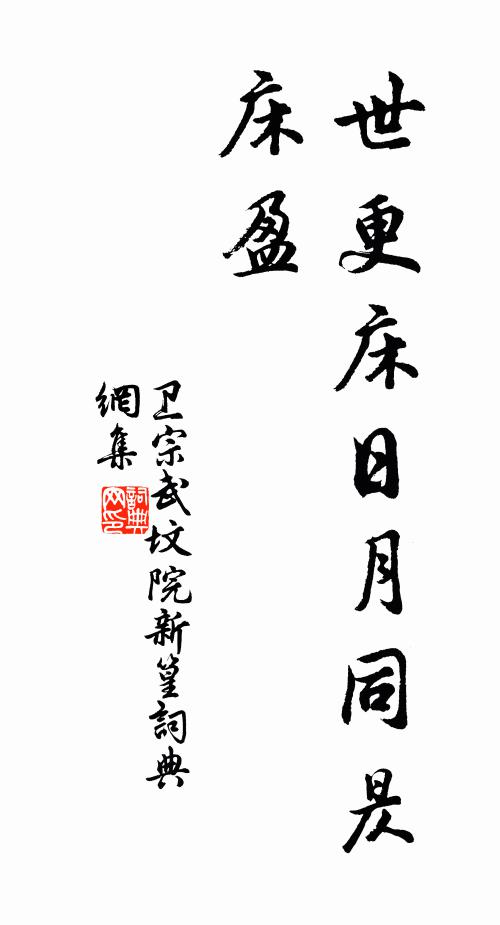 世更床日月同昃
床盈
卫宗武坟院新篁詞典
網集
詞典
网印